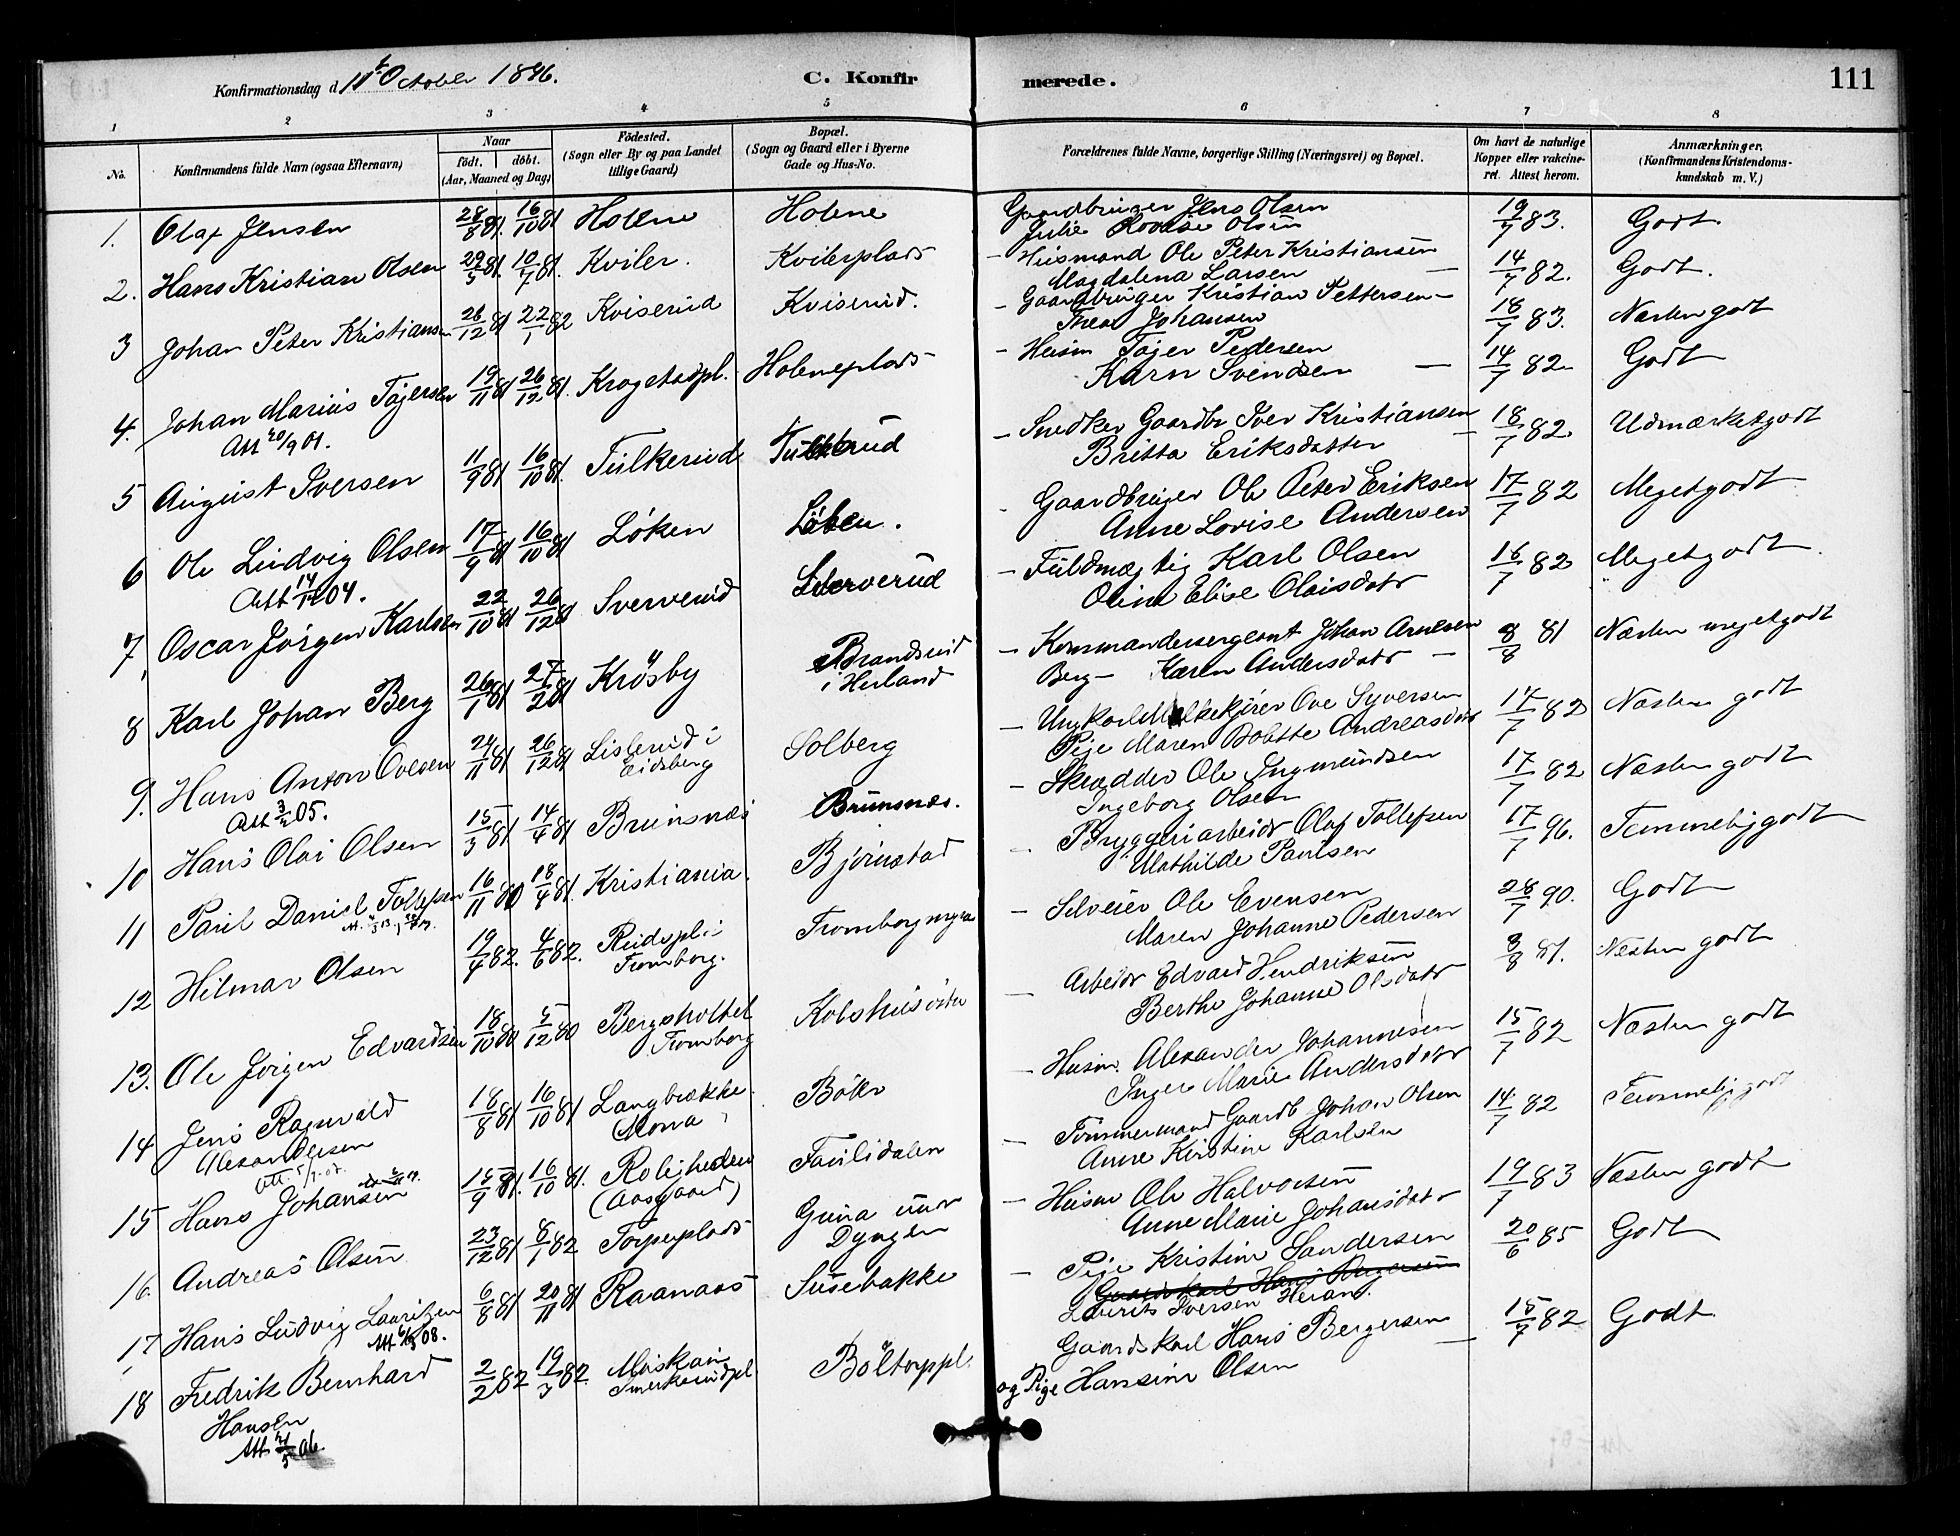 Konfirmationsdag d. 11te October 1896.
C. Konfirmerede.
111
1 2 3 4 5 6 7 8
No.
Konfirmandens fulde Navn (ogsaa Efternavn)
Naar
födt. | döbt.
(Aar, Maaned og Dag)
Födested.
(Sogn eller By og paa Landet
tillige Gaard)
Bopæl.
(Sogn og Gaard eller i Byerne
Gade og Hus-No.
Forældrenes fulde Navne, borgerlige Stilling (Næringsvei) og Bopæl.
Om havt de naturlige
Kopper eller vakcine-
ret. Attest herom.
Anmærkninger.
(Konfirmandens Kristendoms-
kundskab m. V.)
1. Olaf Jensen 28/8 81. 16/10 81 Holene Holene Gaardbruger Jens Olsen 19/7 83. Godt
Julie Lovise Olsen
2. Hans Kristian Olsen 29/5 81. 10/7 81. Kviler. Kvilerplads - Husmand Ole Peter Kristiansen 14/7 82. Godt.
Magdalena Larsen
3 Johan Peter Kristiansen 26/12 81 22/1 82 Kviserud Kviserud. - Gaardbruger Kristian Pettersen - 18/7 83. Næsten godt
Thea Johansen
4. Johan Marius Tøjersen 19/11 81 26/12 81. Krogstadpl. Holeneplads - Husm Tøjer Pedersen 14/7 82 Godt
Att 20/9 01. Karn Svendsen
5 August Iversen 11/9 81 16/10 81. Tulkerud Tulkerud - Snedker Gaardbr Iver Kristiansen 18/7 82. Udmærket godt
Britta Eriksdatter
6 Ole Ludvig Olsen 17/9 81 16/10 81 Løken Løken. Gaardbruger Ole Peter Eriksen 17/7 82 Meget godt
Att 14/11 04. Anne Lovise Andersen
7, Oscar Jørgen Karlsen 22/10 81 26/12 81 Sververud Sververud - Fuldmægtig Karl Olsen 16/7 82 Meget godt
Oline Elise Olaisdatr
8 Karl Johan Berg 26/1 81 27/2 81 Krøsby Brandsrud - Kommandersergeant Johan Arnesen 8/8 81 Næsten meget godt
i Herland Berg - Karen Andersdatr -
9. Hans Anton Ovesen 24/11 81 26/12 81 Lislerud i Solberg - Ungkarl Melkekjører Ove Syversen 14/7 82 Næsten godt
Att 3/2 05. Eidsberg Pige Maren Bolette Andreasdatr
10 Hans Olai Olsen 15/3 81 14/4 81 Brunsnæs Brunsnæs. - Skrædder Ole Ingmundsen 17/7 82 Næsten godt
Ingeborg Olsen
11 Paul Daniel Tollefsen 16/11 80 18/4 81. Kristiania. Bjørnstad Bryggeriarbeidr Olaf Tollefsen 17/7 96. Temmelig godt
Mathilde Paulsen
12 Hilmar Olsen 19/4 82. 4/6 82. Rudspl. i Tromborg myra - Selveier Ole Evensen 28/7 90. Godt
Tromborg. Maren Johanne Pedersen
13. Ole Jørgen Edvardsen 18/10 80 5/12 80 Bergsholtet Kolshus østre - Arbeidr Edvard Hendriksen 3/8 81. Næsten godt
Tromborg Berthe Johanne Olsdatr
14 Jens Ragnvald 18/8 81 16/10 81 Langbrække Böler - Husm. Alexander Johannesen 15/7 82 Næsten godt
Alexandersen Mona Inger Marie Andersdatr
15 Hans Johansen 15/9 81. 16/10 81. Roligheden Fuulidalen - Tømmermand Gaardb Johan Olsen 14/7 82 Temmelig godt
(Aasgaard) Anne Kristine Karlsen
16. Andreas Olsen 23/12 81 8/1 82 Torperplads - Husm Ole Halvorsen 19/7 83 Næsten godt
Dyngen Anne Marie Johansdatr
17, Hans Ludvig Lauritzen 6/8 81 20/11 81 Raanaas Susebakke - Pige Kristine Sandersen 20/6 85 Godt
Gaardskarl Hans Bergersen
Laurits Iversen Heran.
18 Fredrik Bernhard 2/2 82 19/3 82. Böltorppl. Gaardskarl Hans Bergersen 15/7 82 Godt
Hansen og Pige Hansine Olsen
Att 21/5 06.